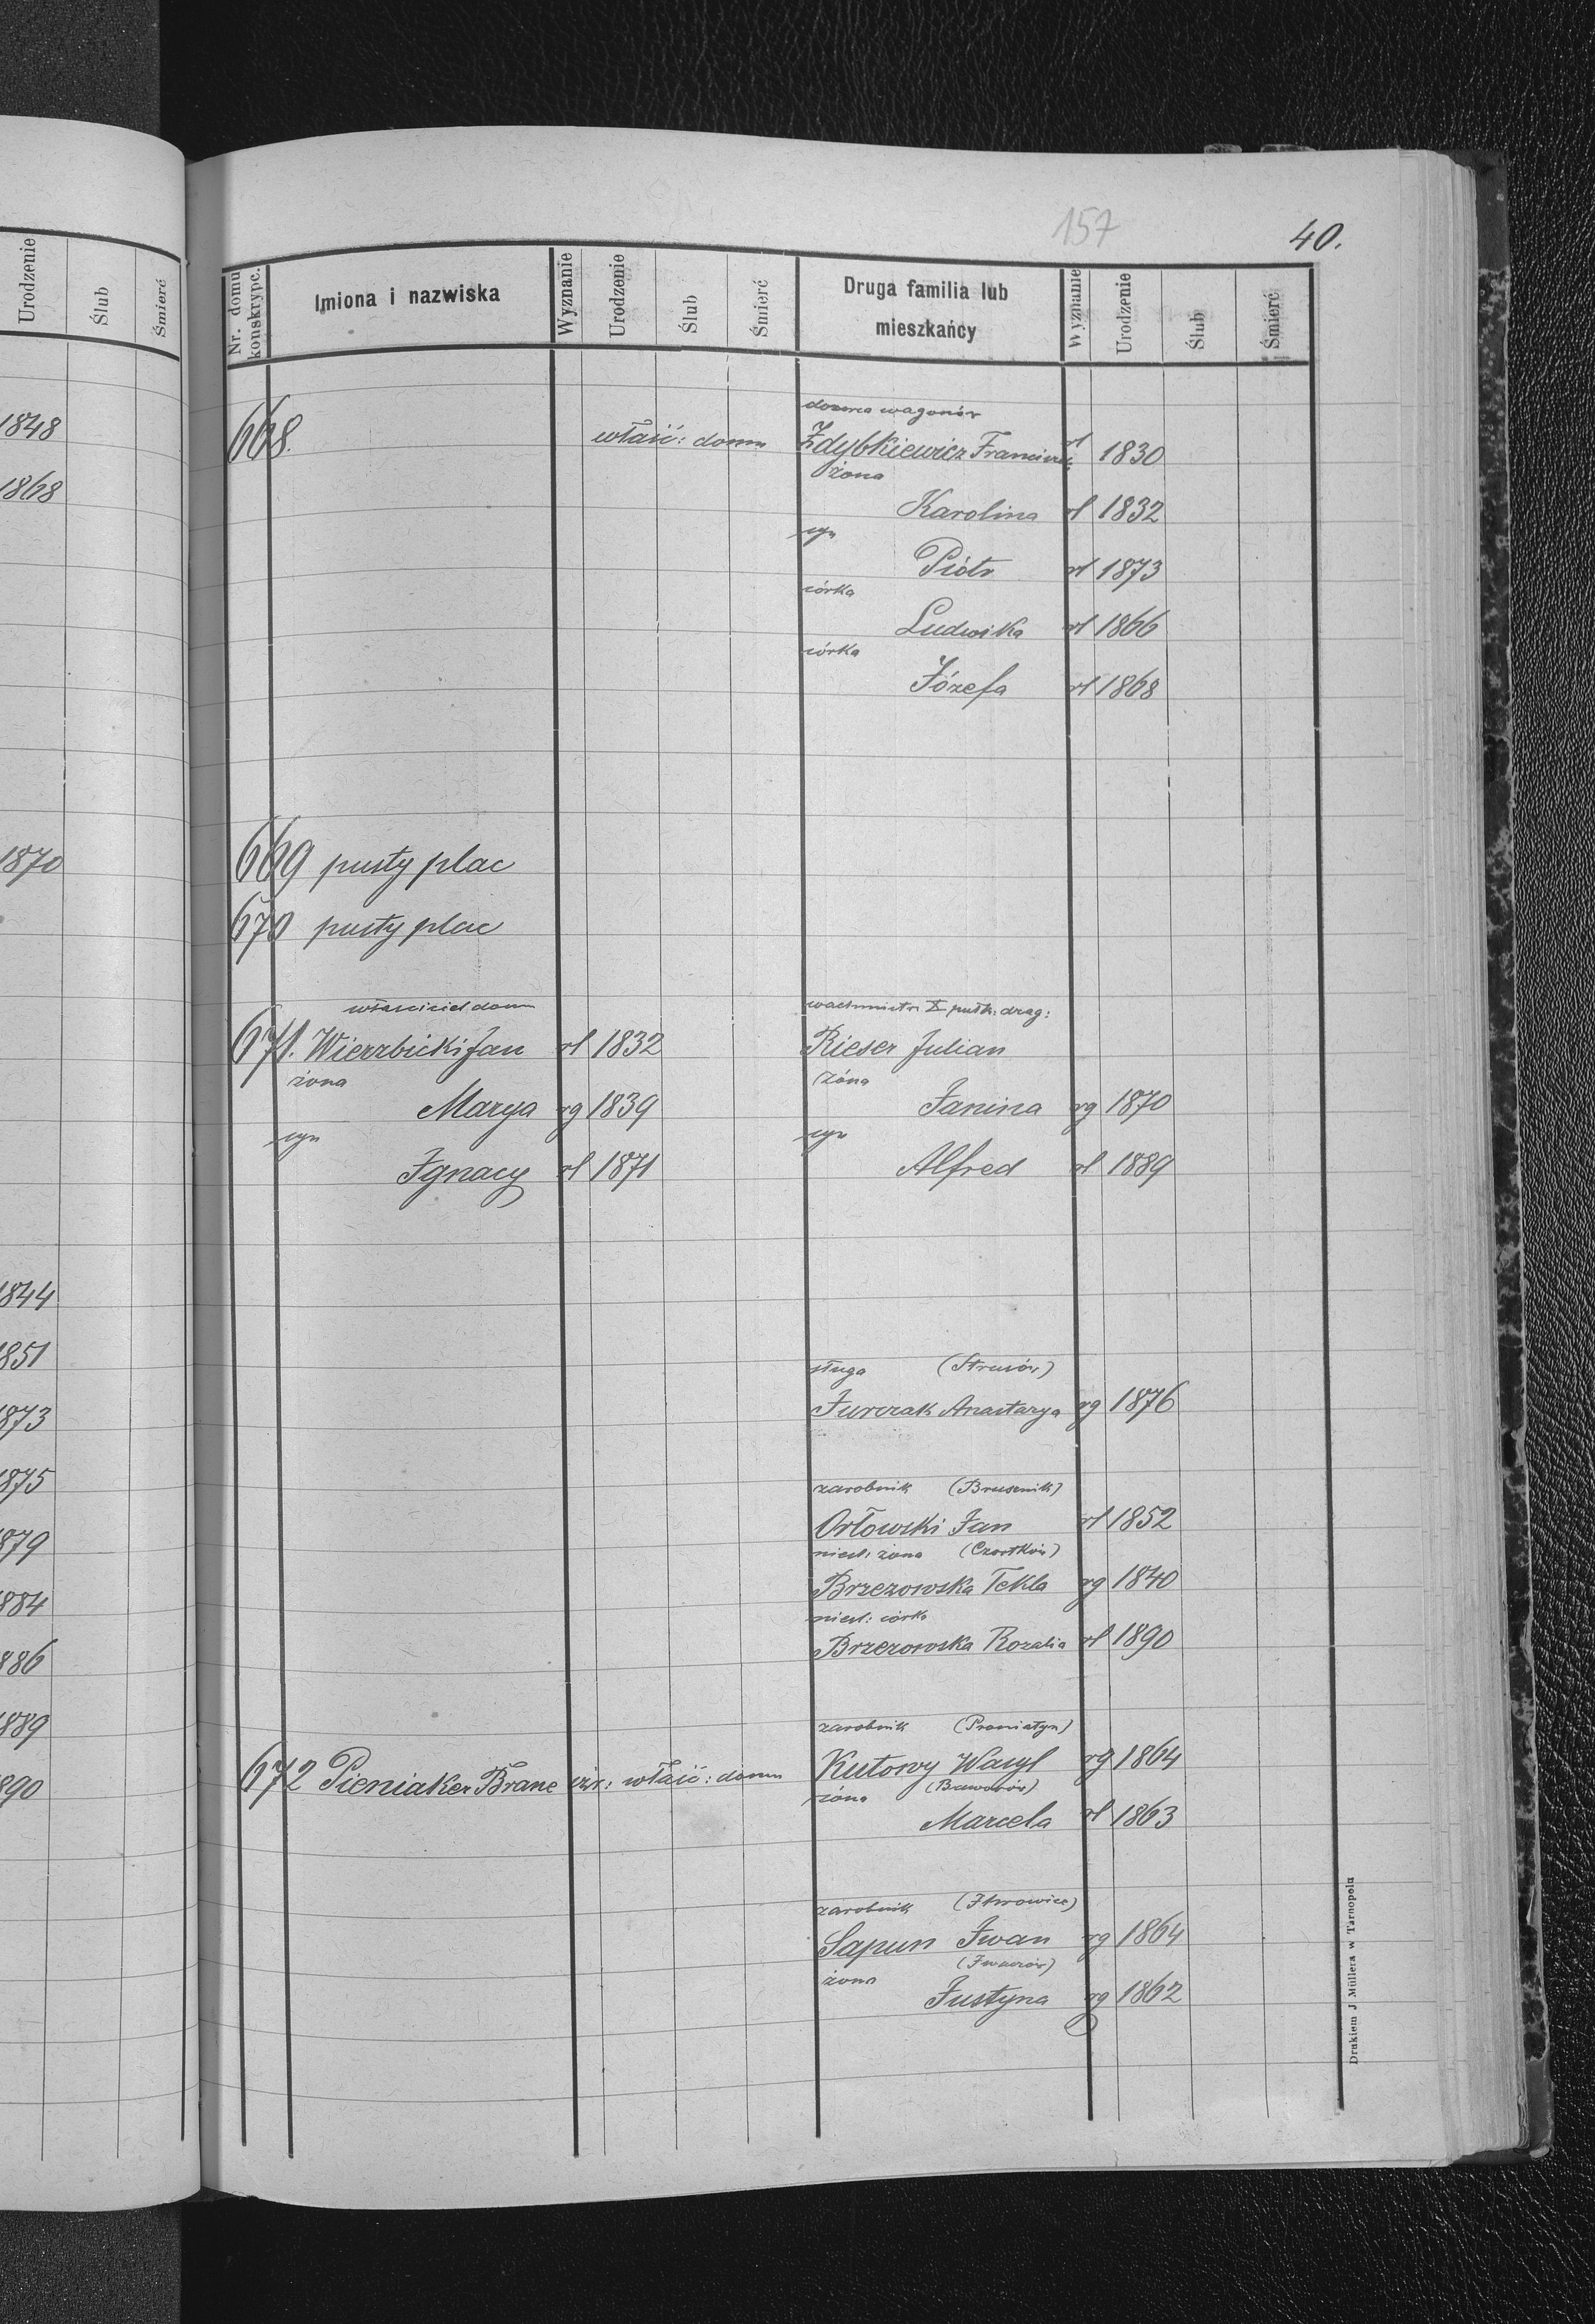 Urodzenie Ślub Śmierć
1848
1868
1870
1844
1851
1873
1875
1879
1884
1886
1889
1890
157
40.
Nr. domu konskrypc. Imiona i nazwiska Wyznanie Urodzenie Ślub Śmierć Druga familia lub mieszkańcy Wyznanie Urodzenie Ślub Śmierć
wagonów
668. właść: domu Zdybkiewicz Franciszek rł 1830
żona
Karolina rł 1832
syn
Piótr rł 1873
córka
Ludwika rł 1866
córka
Józefa rł 1868
669 pusty plac
670 pusty plac
właściciel domu wachmistr X pułk: drag:
671. Wierzbicki Jan rł 1832 Rieser Julian
żona żona
Marya rg 1839 Janina rg 1870
syn syn
Ignacy rł 1871 Alfred rł 1889
sługa (Strusów)
Jurczak Anastazya rg 1876
zarobnik (Brusenik)
Orłowski Jan rł 1852
nieśl: żona (Czortków)
Brzezowska Tekla rg 1840
nieśl: córka
Brzezowska Rozalia rł 1890
zarobnik (Proniatyn)
672 Pieniaker Brane izr: właść: domu Kutowy Wasyl rg 1864
żona (Baworów)
Marcela rł 1863
zarobnik (Ihrowice)
Sapun Iwan rg 1864
żona (Iwaczów)
Justyna rg 1862
Drukiem J Müllera w Tarnopolu